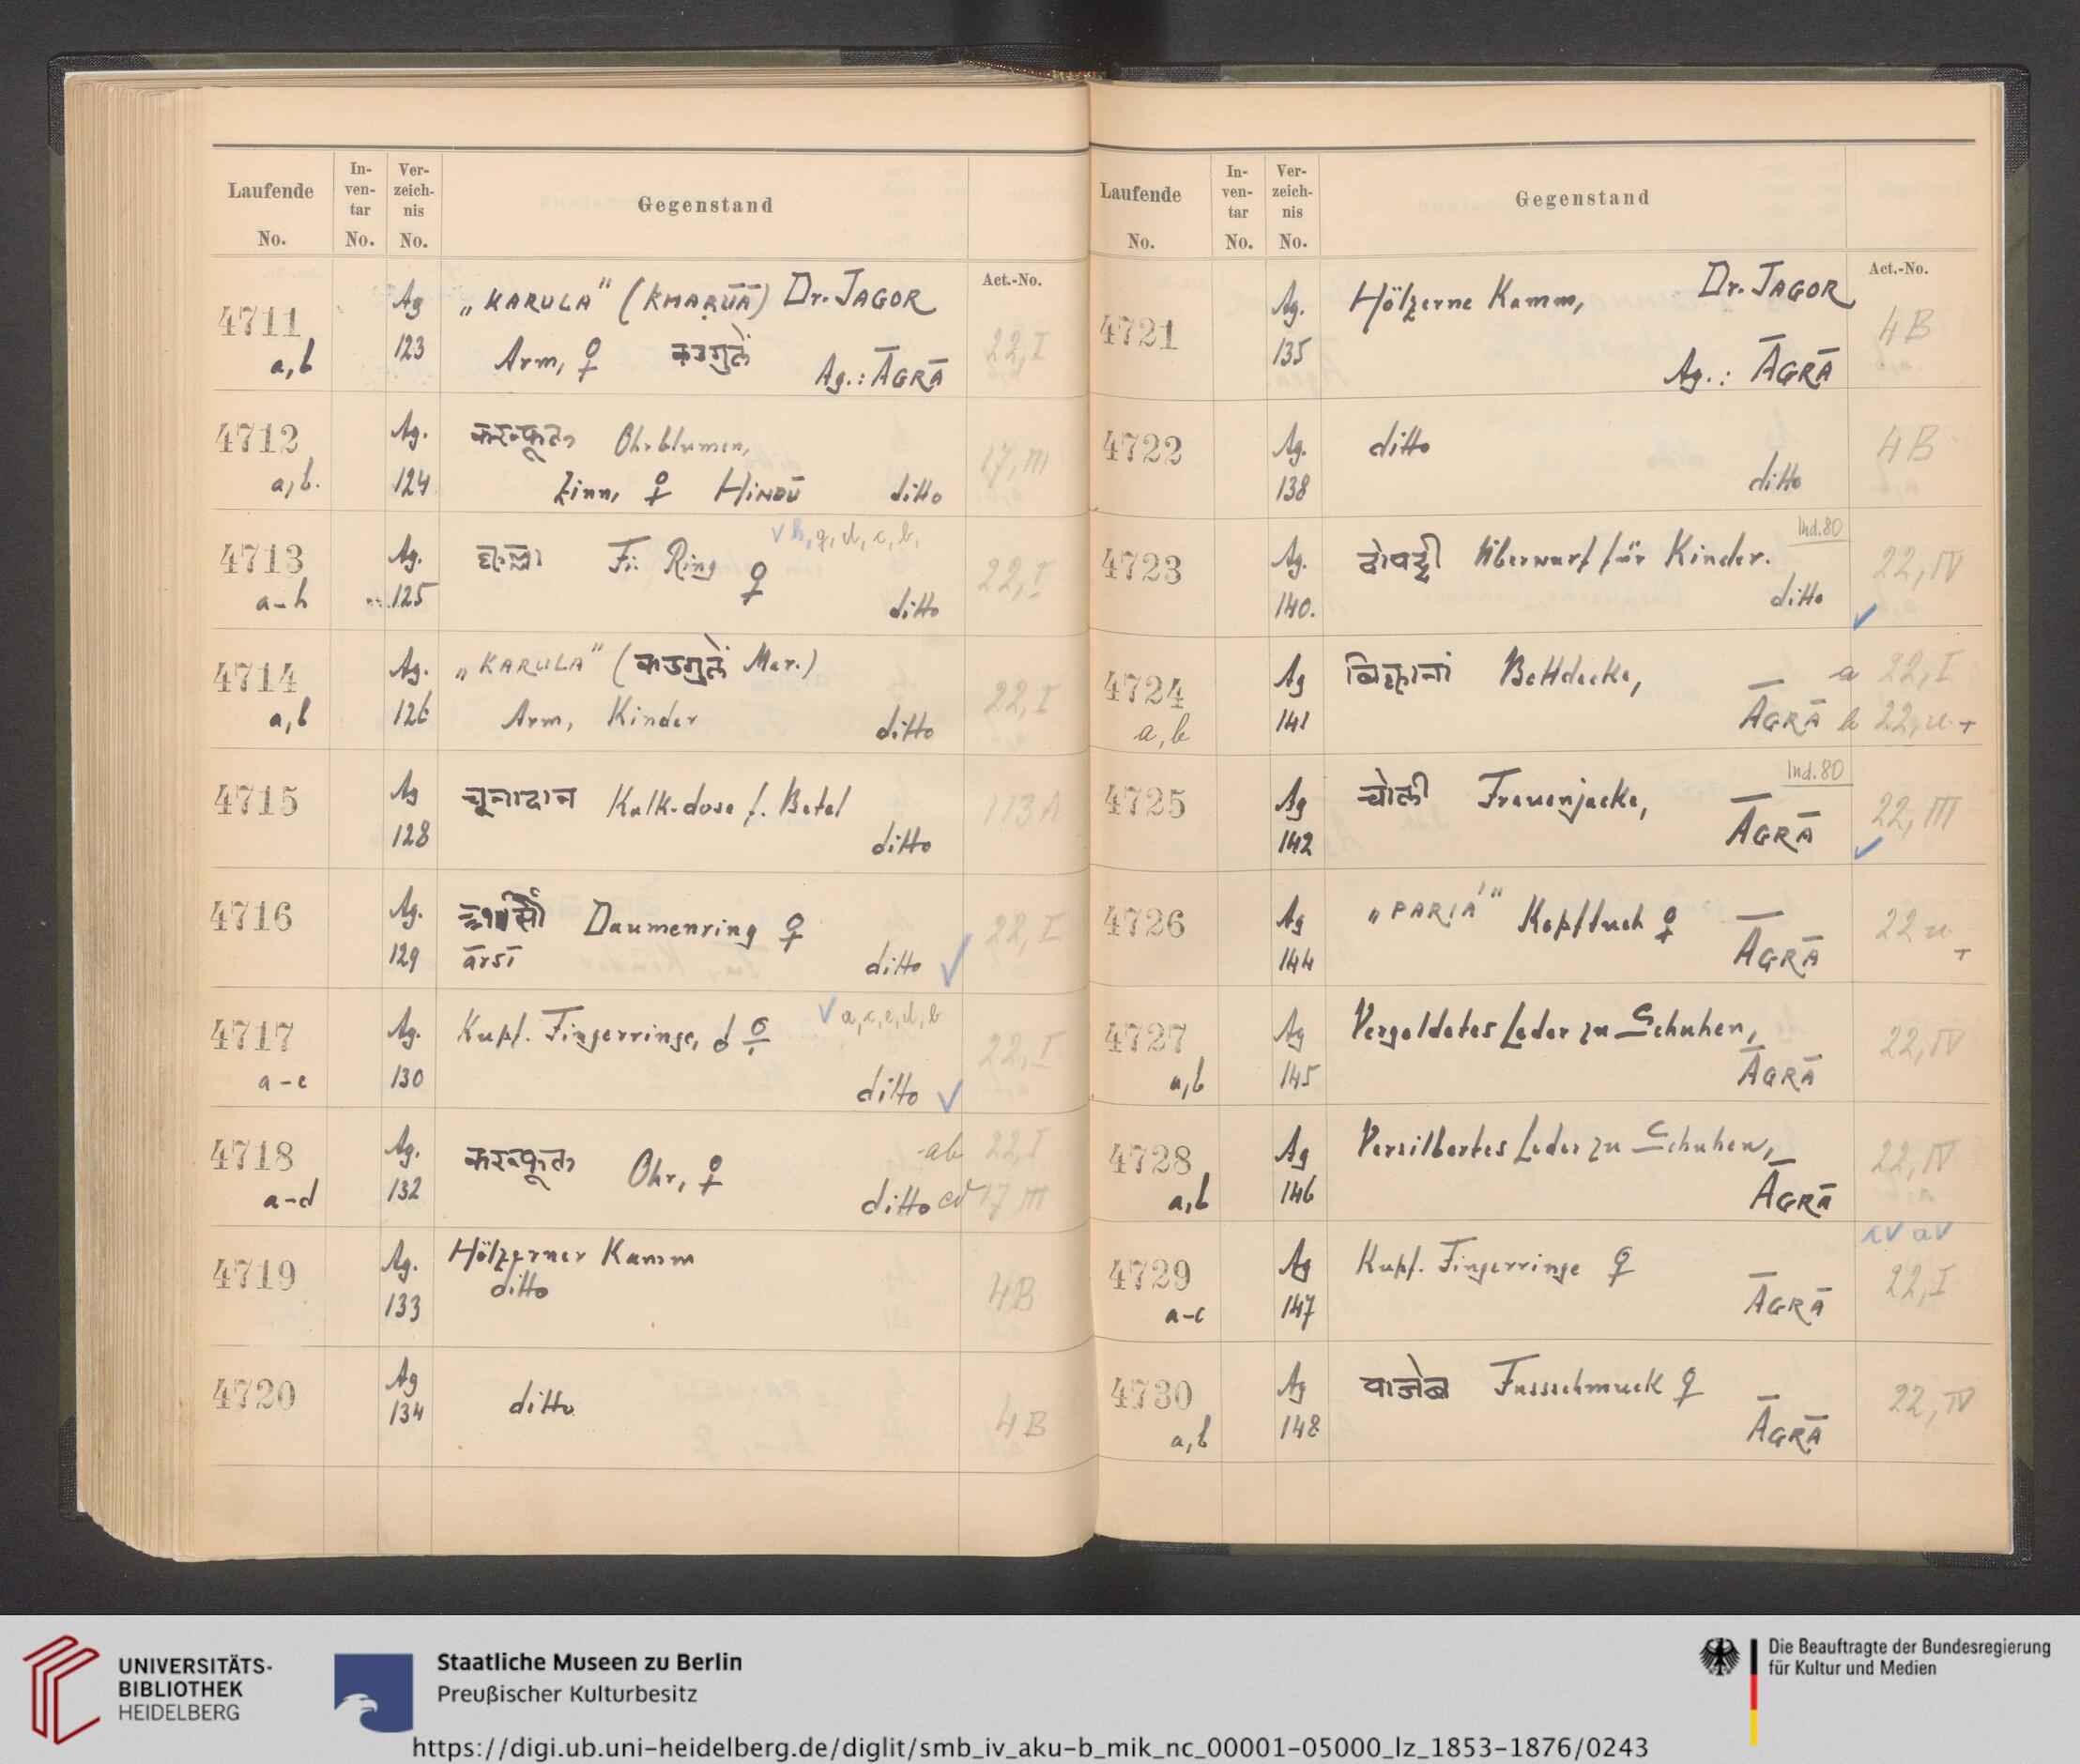 Laufende No. In-ven-tar No. Ver-zeich-nis No. Gegenstand Act.-No.
4711 a,b Ag 123 „KARULA" (KHARUĀ) Dr. JAGOR
Arm, ♀ कडगुलें Ag.: ĀGRĀ 22,I
4712 a,b. Ag. 124 करनफूल Ohrblumen,
Zinn, ♀ HINDŪ ditto 17,III
4713 a-h Ag. 125 Fi: Ring ♀ v h, g, d, c, b,
ditto 22,I
4714 a,b Ag. 126 „KARULA" (कडगुलें Mar.)
Arm, Kinder ditto 22,I
4715 Ag 128 चूनादान Kalk-dose f. Betel
ditto 113A
4716 Ag. 129 Daumenring ♀
ārsī ditto ✓ 22,I
4717 a-e Ag. 130 Kupf. Fingerringe, ♂ ♀ v a,c,e,d,b
ditto ✓ 22,I
4718 a-d Ag. 132 करनफूल Ohr, ♀ ab 22,I
ditto cd 17 III
4719 Ag. 133 Hölzerner Kamm
ditto 4B
4720 Ag 134 ditto 4B
Laufende No. In-ven-tar No. Ver-zeich-nis No. Gegenstand Act.-No.
4721 Ag. 135 Hölzerne Kamm, Dr. JAGOR
Ag.: ĀGRĀ 4B
4722 Ag. 138 ditto
ditto 4B
4723 Ag. 140. Überwurf für Kinder. Ind.80
ditto ✓ 22,IV
4724 a,b Ag 141 Bettdecke, a 22,I
ĀGRĀ b 22,u.+
4725 Ag 142 चोली Frauenjacke, Ind.80
ĀGRĀ ✓ 22,III
4726 Ag 144 „PARIÁ" Kopftuch ♀
ĀGRĀ 22
4727 a,b Ag 145 Vergoldetes Leder zu Schuhen,
ĀGRĀ 22,IV
4728 a,b Ag 146 Versilbertes Leder zu Schuhen,
ĀGRĀ 22,IV
4729 a-c Ag 147 Kupf. Fingerringe ♀ cv av
ĀGRĀ 22,I
4730 a,b Ag 148 पाजेब Fussschmuck ♀
ĀGRĀ 22,IV
UNIVERSITÄTS-
BIBLIOTHEK
HEIDELBERG
Staatliche Museen zu Berlin
Preußischer Kulturbesitz
Die Beauftragte der Bundesregierung
für Kultur und Medien
https://digi.ub.uni-heidelberg.de/diglit/smb_iv_aku-b_mik_nc_00001-05000_lz_1853-1876/0243